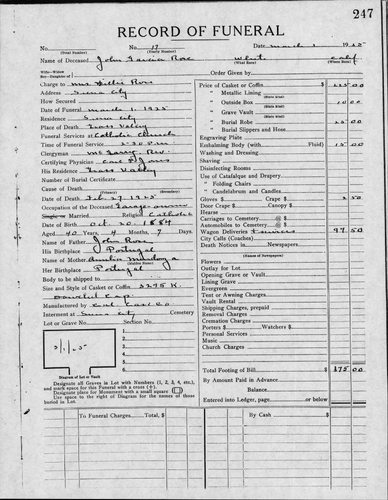 247
RECORD OF FUNERAL
No. No. 17 Date March 1 1925
(Total Number) (Yearly Number)
Name of Deceased John Pereira Rose White Calif
(What Race) (Where Born)
Wife—Widow
Son—Daughter of Order Given by
Charge to Mrs Rose
Address Sierra City
How Secured
Date of Funeral March 1, 1925
Residence Sierra City
Place of Death Grass Valley
Funeral Services at Catholic Church
Time of Service 2:30 P.M.
Clergyman Rev.
Certifying Physician Carl P. Jones
His Residence Grass Valley
Number of Burial Certificate
Cause of Death
(Primary) (Secondary)
Date of Death Feb. 27, 1925
Occupation of the Deceased Garage owner
Single or Married Religion Catholic
Date of Birth Oct. 20, 1884
Aged 40 Years 4 Months 7 Days
Name of Father John Rose
His Birthplace Portugal
Name of Mother Amelia Mendoza
(Maiden Name)
Her Birthplace Portugal
Body to be shipped to
Size and Style of Casket or Coffin
Manufactured by
Interment at Sierra City Cemetery
Lot or Grave No. Section No.
1.
2.
3.
4.
5.
6.
Diagram of Lot or Vault
Designate all Graves in Lot with Numbers (1, 2, 3, 4, etc.), and mark space for this Funeral with a cross (+).
Designate place for Monument with a small square (□)
Use space to the right of Diagram for the names of those Buried in Lot.
Price of Casket or Coffin $ 225 00
" Metallic Lining
(State Kind)
" Outside Box 10 00
(State Kind)
" Grave Vault
(State Kind)
" Burial Robe 25 00
(State Kind)
" Burial Slippers and Hose
Engraving Plate
Embalming Body (with Fluid) 15 00
Washing and Dressing
Shaving
Disinfecting Rooms
Use of Catafalque and Drapery
" Folding Chairs
" Candelabrum and Candles
Gloves $ Crape $ 2 50
Door Crape $ Canopy $
Hearse
Carriages to Cemetery @ $
Automobiles to Cemetery @ $
Wagon Deliveries 97 50
City Calls (Coaches)
Death Notices in Newspapers
(Names of Newspapers)
Flowers
Outlay for Lot
Opening Grave or Vault
Lining Grave
Evergreen
Tent or Awning Charges
Vault Rental
Shipping Charges, prepaid
Removal Charges
Cremation Charges
Porters $ Watchers $
Personal Services
Music
Church Charges
Total Footing of Bill $ 375 00
By Amount Paid in Advance
Balance
Entered into Ledger, page or below
To Funeral Charges, Total, $ By Cash $